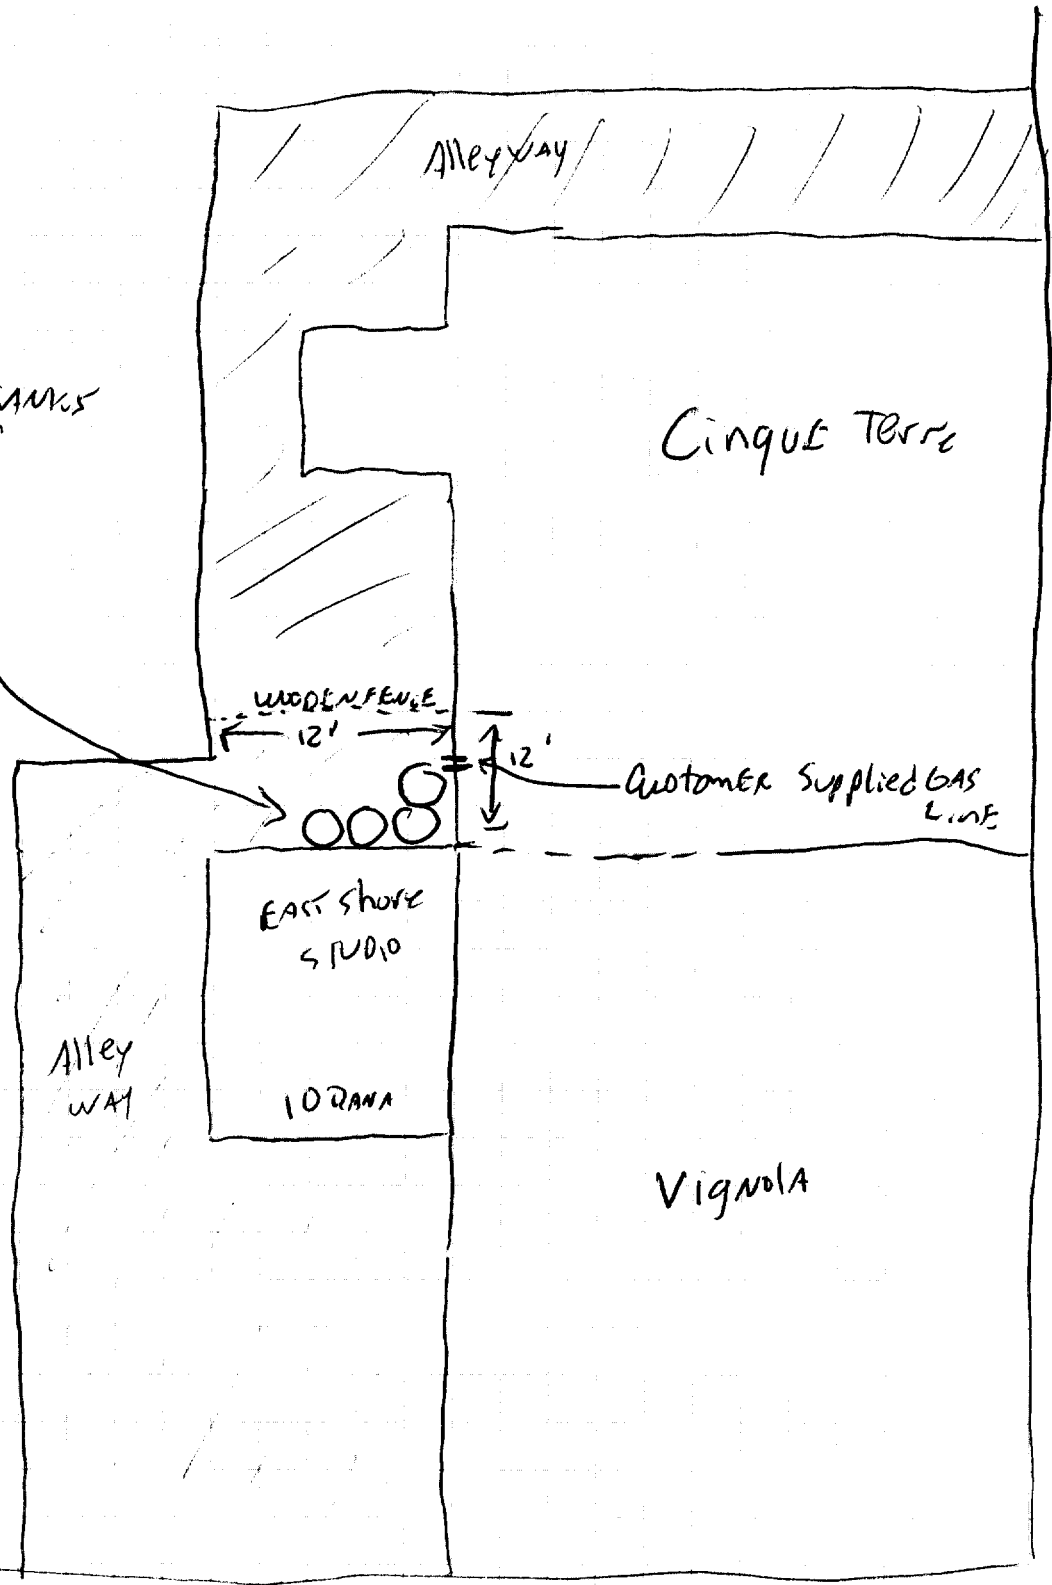 Alleyway
Cinque Terre
WOODEN FENCE
12'
12'
Customer Supplied GAS
Line
EAST Shore
STUDIO
Alley
WAY
10 DANA
VignolA